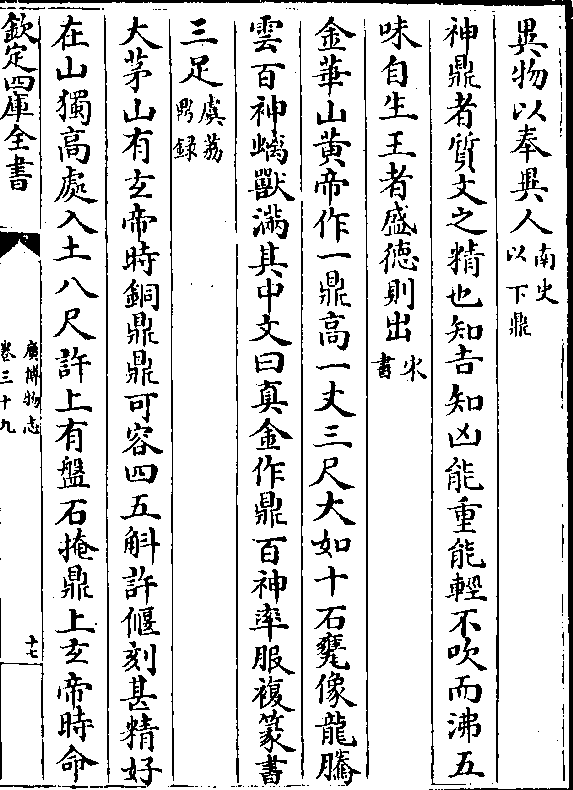 異物以奉異人南史以下鼎
神鼎者質文之精也知吉知凶能重能輕不吹而沸五
味自生王者盛德則出宋書
金華山黄帝作一鼎高一丈三尺大如十石甕像龍騰
雲百神螭獸滿其中文曰真金作鼎百神率服複篆書
三足虞荔鼎録
大茅山有玄帝時銅鼎鼎可容四五斛許偃刻甚精好
在山獨高處入土八尺許上有盤石掩鼎上玄帝時命
欽定四庫全書
廣博物志
卷三十九
十七